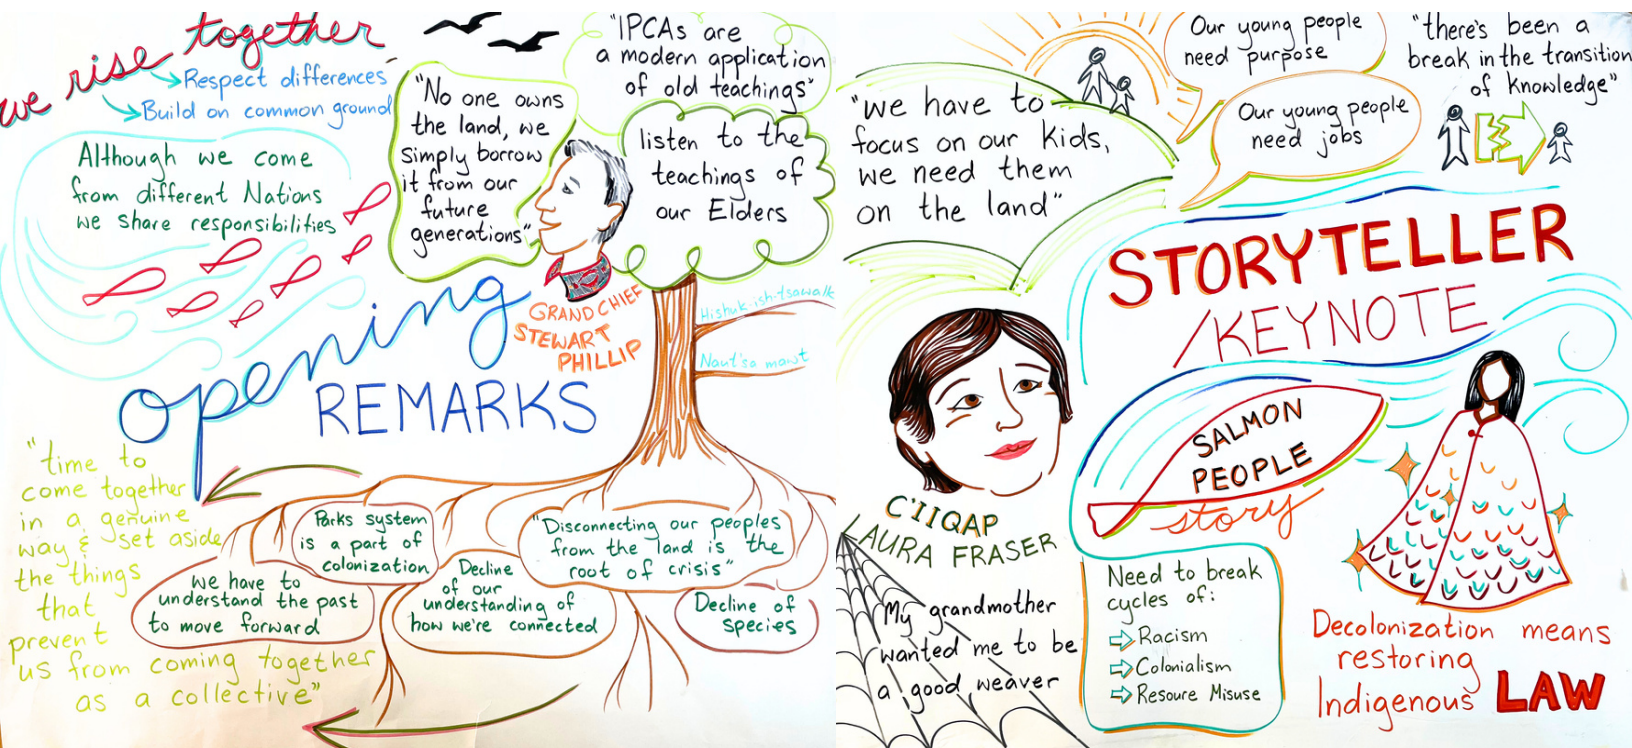 we rise together
Respect differences
Build on common ground
Although we come
from different Nations
we share responsibilities
"No one owns
the land, we
simply borrow
it from our
future
generations"
"IPCAs are
a modern application
of old teachings"
listen to the
teachings of
our Elders
opening
REMARKS
GRAND CHIEF
STEWART
PHILLIP
Hishuk-ish-tsawalk
Naut'sa mawt
"time to
come together
in a genuine
way & set aside
the things
that
prevent
us from coming together
as a collective"
Parks system
is a part of
colonization
we have to
understand the past
to move forward
Decline
of our
understanding of
how we're connected
"Disconnecting our peoples
from the land is the
root of crisis"
Decline of
species
"we have to
focus on our kids,
we need them
on the land"
Our young people
need purpose
Our young people
need jobs
"there's been a
break in the transition
of knowledge"
STORYTELLER
/KEYNOTE
C'IIQAP
LAURA FRASER
My grandmother
wanted me to be
a good weaver
SALMON
PEOPLE
story
Need to break
cycles of:
Racism
Colonialism
Resoure Misuse
Decolonization means
restoring
Indigenous LAW